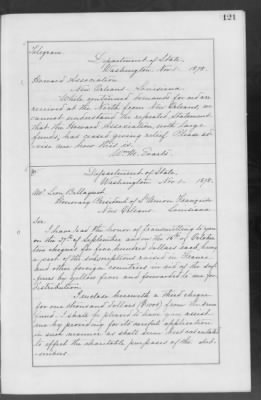 121
Telegram.
Department of State,
Washington Nov. 1878.
Howard Association
New Orleans, Louisiana.
While continued demands for aid are
received at the North from New Orleans, we
cannot understand the repeated statement
that the Howard Association, with large
funds, has ceased giving relief. Please ad-
vise me how this is.
Wm. M. Evarts.
Department of State,
Washington Nov. 1878.
Mr. Léon
Honorary President of L'Union Française
New Orleans Louisiana
Sir:
I have had the honor of transmitting to you
on the 27th of September and on the 16th of October
two cheques for five hundred dollars each, being
a part of the subscriptions raised in France
and other foreign countries in aid of the suf-
ferers by yellow fever and forwarded to me for
distribution.
I enclose herewith a third cheque
for one thousand dollars ($1000) from the same
fund. I shall be pleased to have you assist
me by providing for its careful application
in such manner as shall seem best calculated
to effect the charitable purposes of the sub-